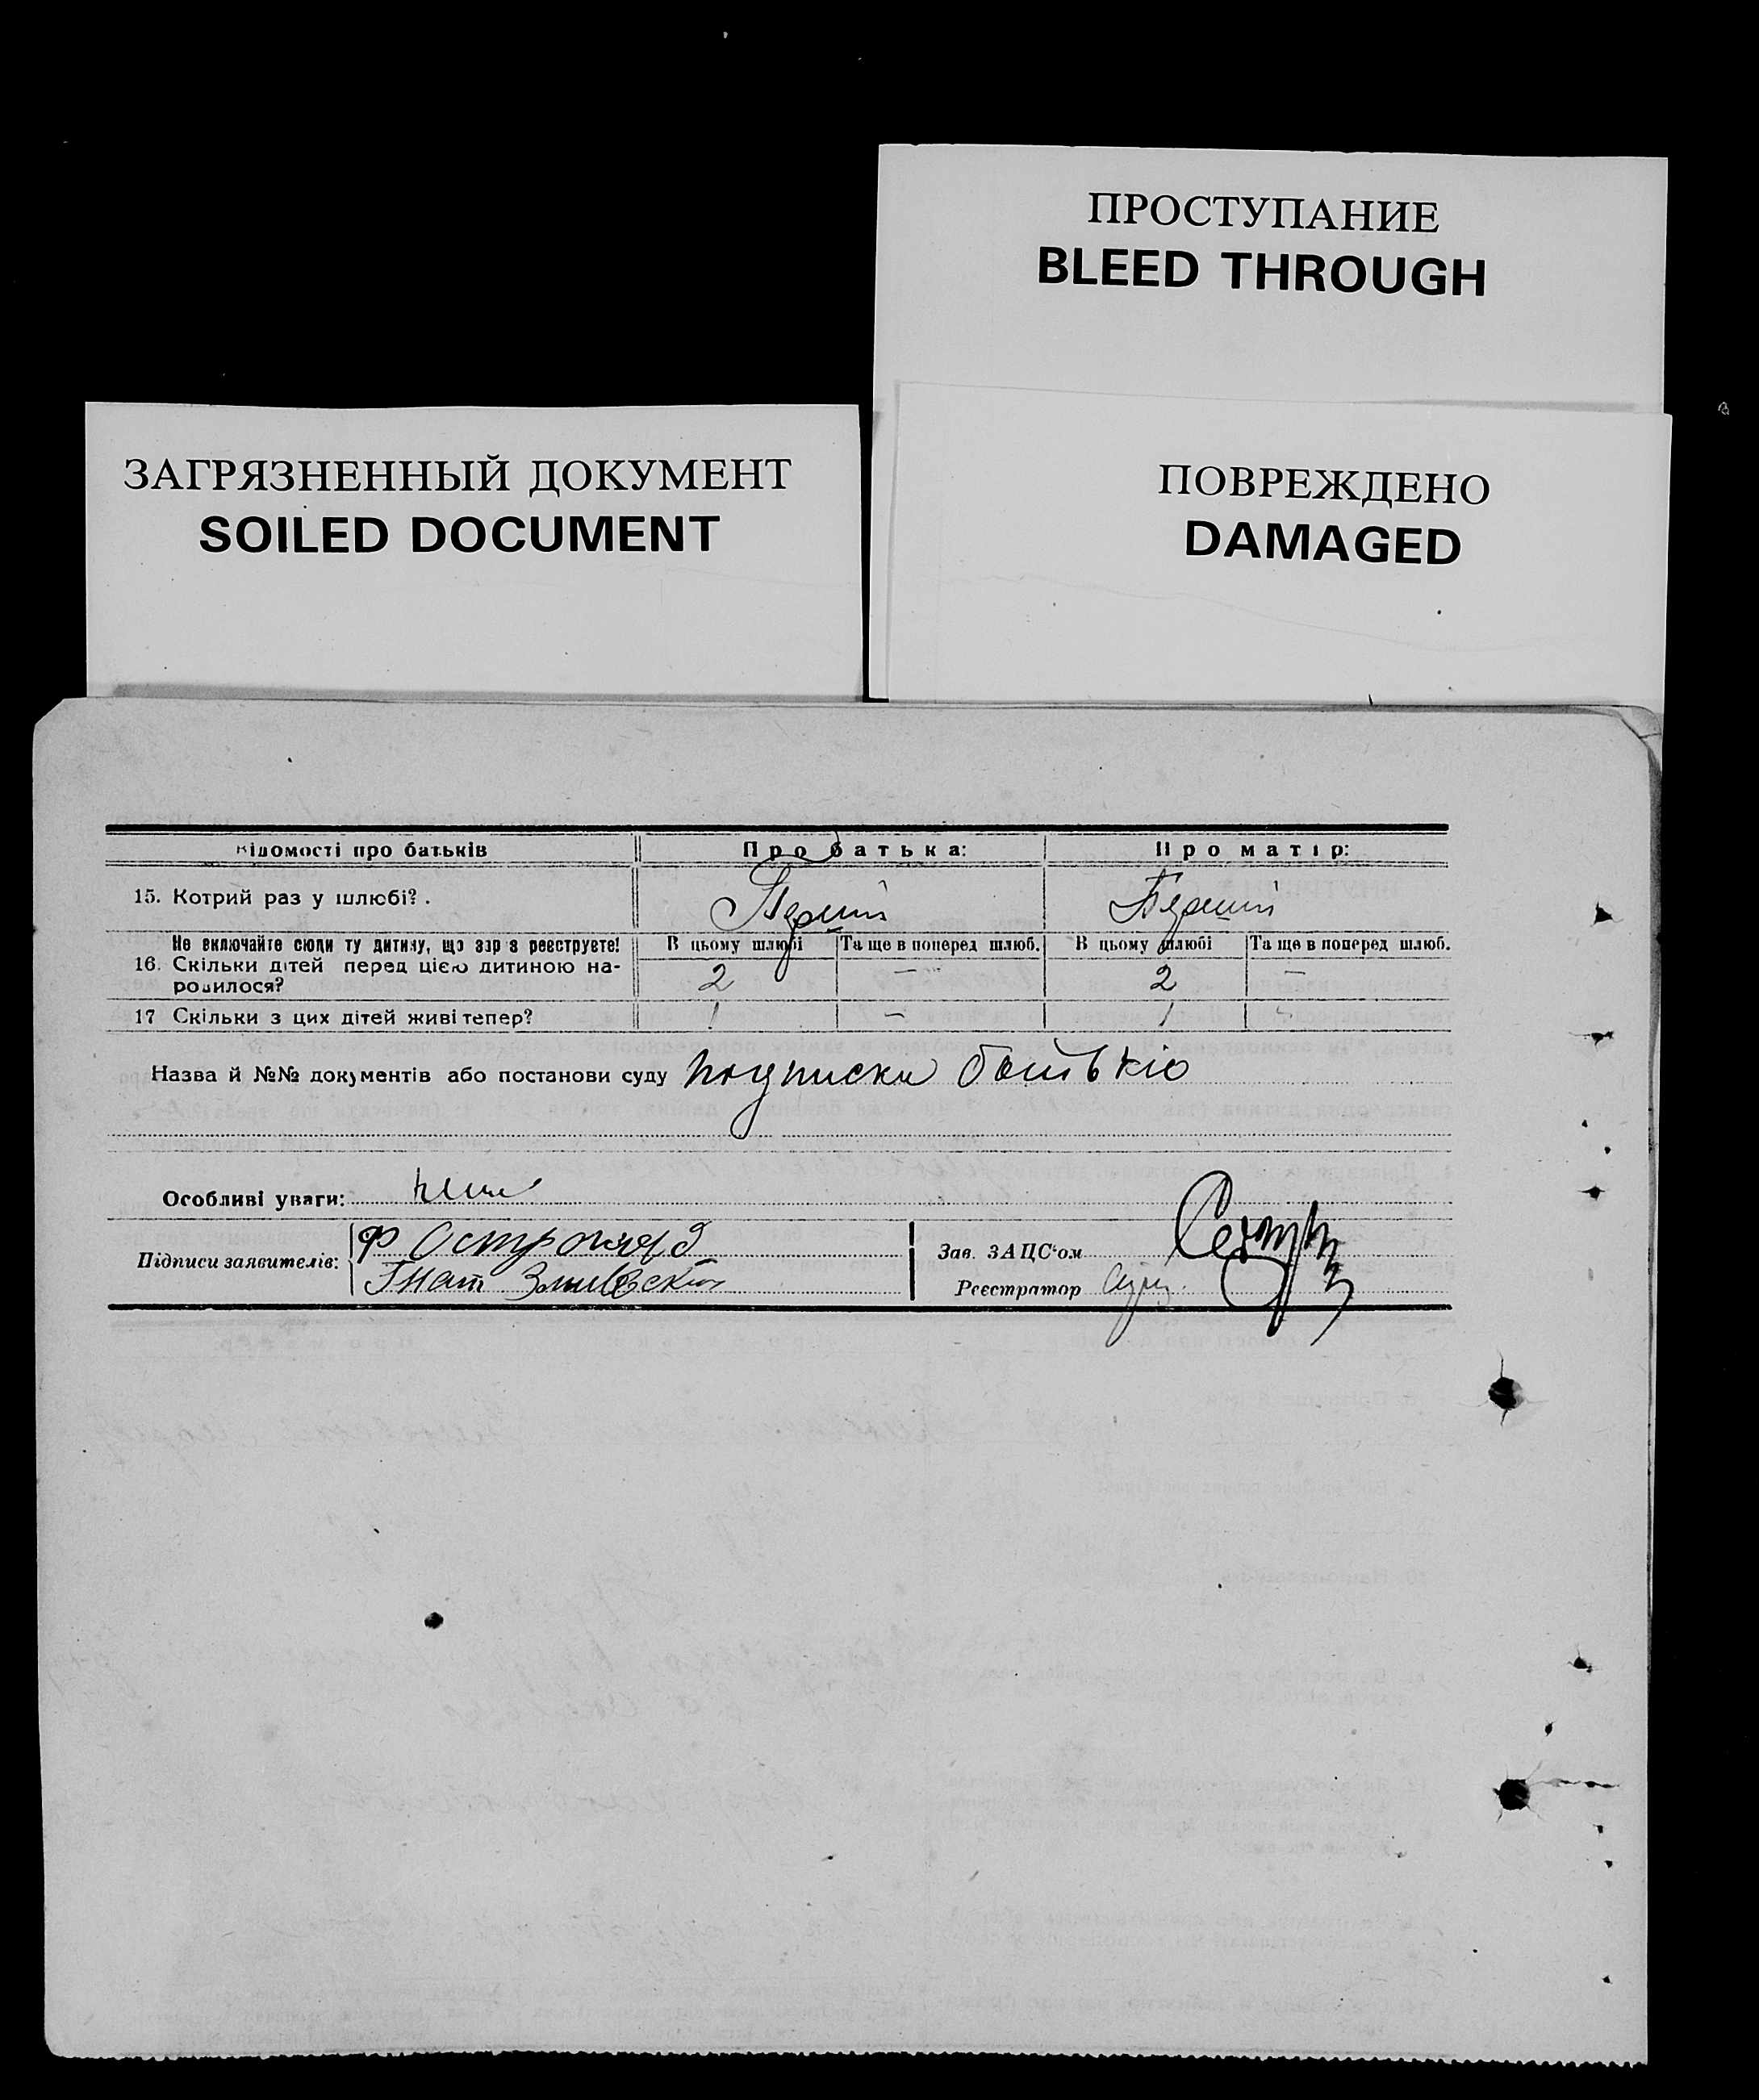 ПРОСТУПАНИЕ
BLEED THROUGH
ЗАГРЯЗНЕННЫЙ ДОКУМЕНТ
SOILED DOCUMENT
ПОВРЕЖДЕНО
DAMAGED
Відомості про батьків Про батька: Про матір:
15. Котрий раз у шлюбі? . Перший Перший
Не включайте сюди ту дитину, що зараз реєструєте! В цьому шлюбі Та ще в поперед шлюб. В цьому шлюбі Та ще в поперед шлюб.
16. Скільки дітей перед цією дитиною на-
родилося? 2 — 2 —
17 Скільки з цих дітей живі тепер? 1 — 1 —
Назва й №№ документів або постанови суду подписки батьків
Особливі уваги:
Підписи заявителів: Ф
Гнат
Зав. ЗАЦС'ом
Реєстратор